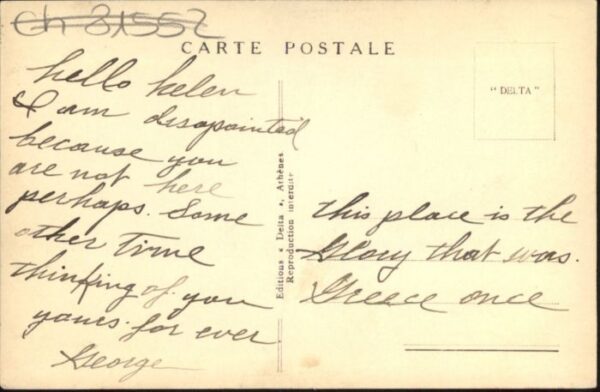 Ch 81552
CARTE POSTALE
"DELTA"
hello helen
I am disapointed
because you
are not here
perhaps. Some
other Time
thinking of you
youes. for ever
George
Editions « Delta », Athènes
Reproduction interdite
this place is the
Glory that was.
Greece once